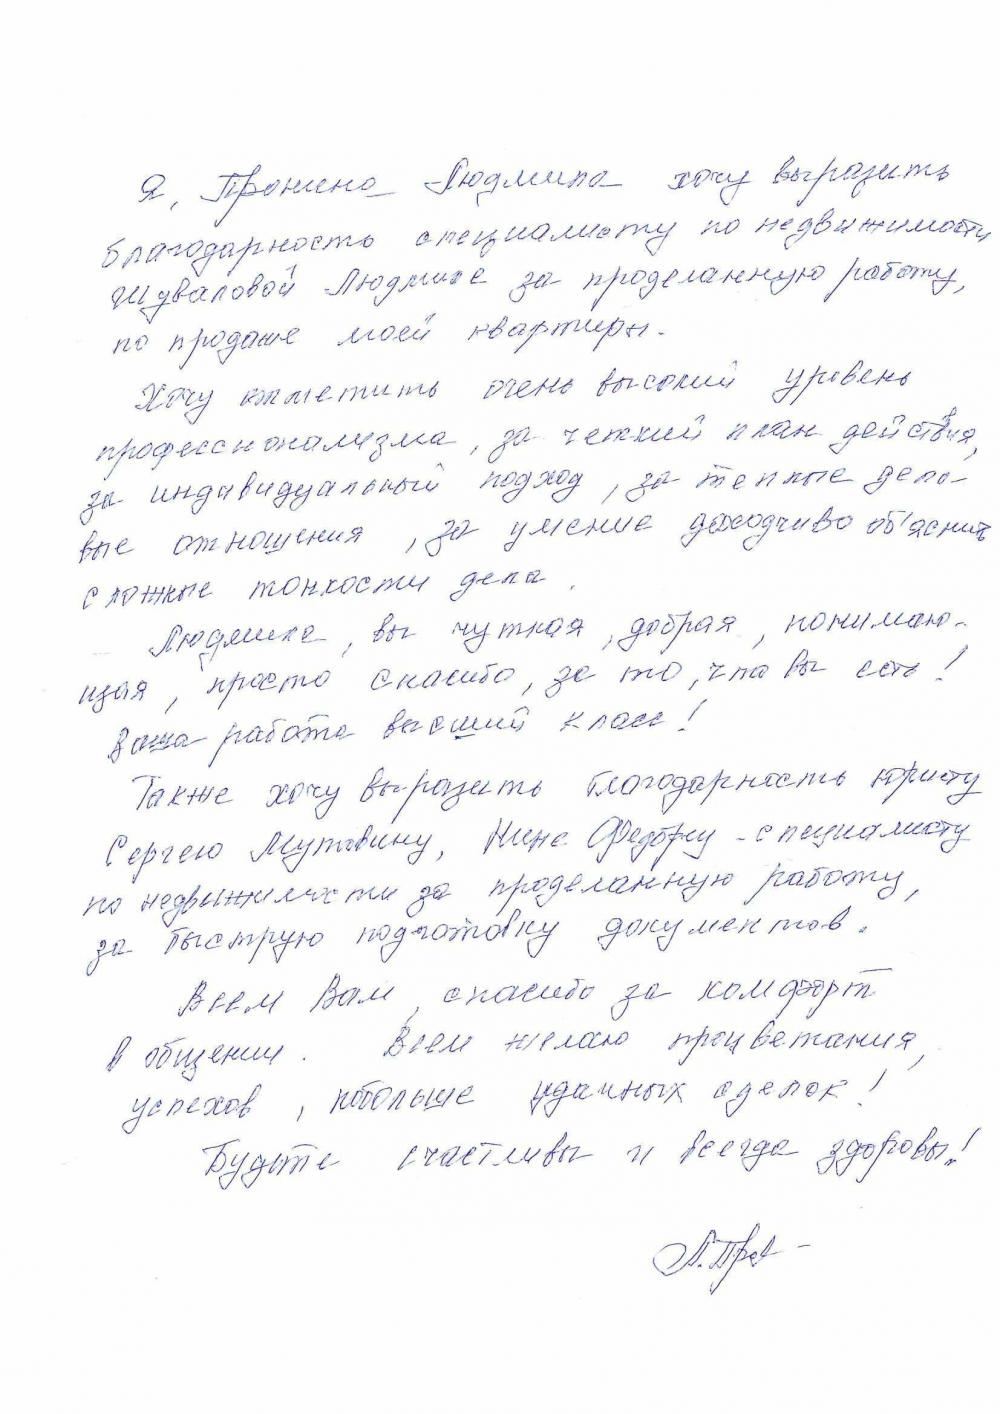 Я, Пронина Людмила хочу выразить
благодарность специалисту по недвижимости
Шуваловой Людмиле за проделанную работу,
по продаже моей квартиры.
Хочу отметить очень высокий уровень
профессионализма, за четкий план действия,
за индивидуальный подход, за теплые дело-
вые отношения, за умение доходчиво об'яснить
сложные тонкости дела.
Людмила, вы чуткая, добрая, понимаю-
щая, просто спасибо, за то, что вы есть!
Ваша работа высший класс!
Также хочу выразить благодарность юристу
Сергею Мутовину, Нине - специалисту
по недвижимости за проделанную работу,
за быструю подготовку документов.
Всем Вам, спасибо за комфорт
в общении. Всем желаю процветания,
успехов, побольше удачных сделок!
Будьте счастливы и всегда здоровы!